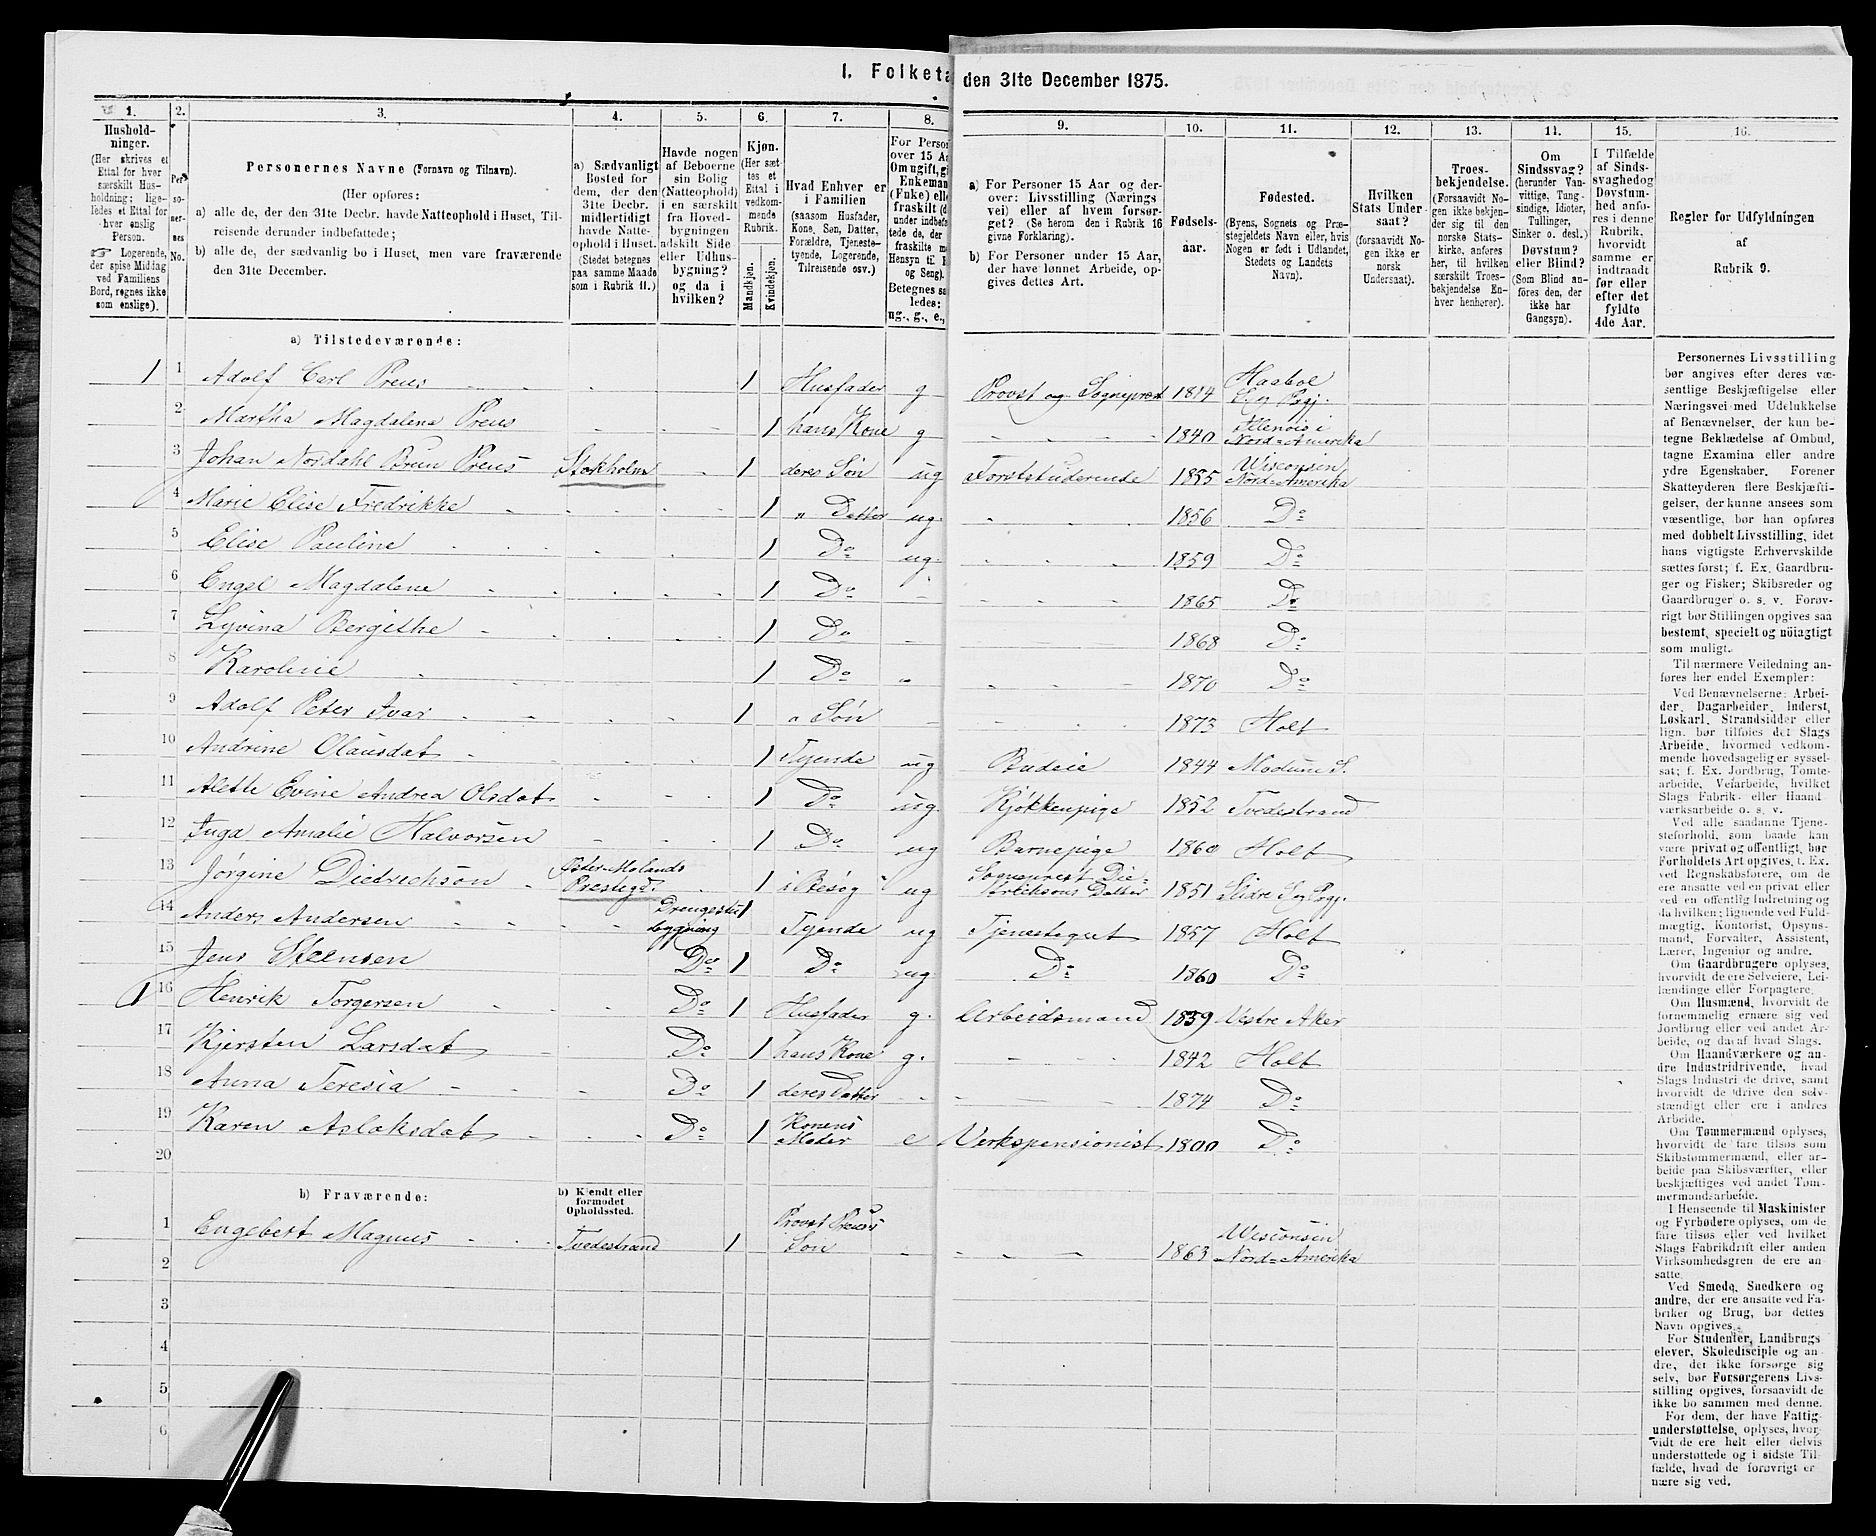 1. Folketæ
den 31te December 1875.
1.
Hushold-
ninger.
(Her skrives et
Ettal for hver
særskilt Hus-
holdning; lige-
ledes et Ettal for
hver enslig
Person.
Logerende,
der spise Middag
ved Familiens
Bord, regnes ikke
som enslige).
2.
Per-
so-
ner-
nes
No.
3.
Personernes Navne (Fornavn og Tilnavn).
(Her opføres:
a) alle de, der den 31te Decbr. havde Natteophold i Huset, Til-
reisende derunder indbefattede;
b) alle de, der sædvanlig bo i Huset, men vare fraværende
den 31te December.
4.
a) Sædvanligt
Bosted for
dem, der den
31te Decbr.
midlertidigt
havde Natte-
ophold i Huset.
(Stedet betegnes
paa samme Maade
som i Rubrik 11.)
5.
Havde nogen
af Beboerne
sin Bolig
(Natteophold)
i en særskilt
fra Hoved-
bygningen
adskilt Side
eller Udhus-
bygning?
og da i
hvilken?
6.
Kjøn.
(Her sæt-
tes et
Ettal i
vedkom-
mende
Rubrik.
Mandkjøn.
Kvindekjøn.
7.
Hvad Enhver er
i Familien
(saasom Husfader,
Kone, Søn, Datter,
Forældre, Tjeneste-
tyende, Logerende,
Tilreisende osv.)
8.
For Person
over 15 Aa
Om ugift, gi
Enkeman
(Fuke) elle
fraskilt (d
under indbefat-
tede de, der
fraskilte m
Hensyn til B
og Seng).
Betegnes sa
ledes:
ug., g., e.,
9.
a) For Personer 15 Aar og der-
over: Livsstilling (Nærings
vei) eller af hvem forsør-
get? (Se herom den i Rubrik 16
givne Forklaring).
b) For Personer under 15 Aar,
der have lønnet Arbeide, op-
gives dettes Art.
10.
Fødsels-
aar.
11.
Fødested.
(Byens, Sognets og Præ-
stegjeldets Navn eller, hvis
Nogen er født i Udlandet,
Stedets og Landets
Navn).
12.
Hvilken
Stats Under-
saat?
(forsaavidt No-
gen ikke er
norsk
Undersaat).
13.
Troes-
bekjendelse.
(Forsaavidt No-
gen ikke bekjen-
der sig til den
norske Stats-
kirke, anføres
her, til hvilken
særskilt Troes-
bekjendelse En-
hver henhører).
14.
Om
Sindssvag?
(herunder Van-
vittige, Tung-
sindige, Idioter,
Tullinger,
Sinker o. desl.)
Døvstum?
eller Blind?
(Som Blind an-
føres den, der
ikke har
Gangsyn).
15.
I Tilfælde
af Sinds-
svaghed og
Døvstum-
hed anfø-
res i denne
Rubrik,
hvorvidt
samme er
indtraadt
før eller
efter det
fyldte
4de Aar.
16.
Regler for Udfyldningen
af
Rubrik 9.
a) Tilstedeværende:
1 1 Adolf Carl Preus 1 Husfader g Provst og Sognepræst 1814 Haabøl Eger Pgj.
2 Martha Magdalena Preus 1 hans Kone g 1840 Illenois i Nord=Amerika
3 Johan Nordahl Brun Preus Stokholm 1 deres Søn ug Forststuderende 1855 Wisconsin Nord=Amerika
4 Marie Elise Fredrikke 1 „ Datter ug. 1856 Do
5 Elise Pauline 1 Do ug. 1859 Do
6 Engel Magdalene 1 Do 1865 Do
7 Lyvina Bergithe 1 Do 1868 Do
8 Karoline 1 Do 1870 Do
9 Adolf Peter Ivar 1 „ Søn 1873 Holt
10 Andrine Olausdat 1 Tyende ug Budeie 1844 Modum S.
11 Alette Evine Andrea Olsdat 1 Do ug. Kjøkkenpige 1852 Tvedestrand
12 Inga Amalie Halvorsen 1 Do ug Barnepige 1860 Holt
13 Jørgine Dietrichson Øster-Molands Prestegd. 1 i Besøg ug Sogneprest Die-trichsons Datter 1851 Slidre
14 Anders Andersen Drengestu bygning 1 Tyende ug Tjenestegut 1857 Holt
15 Jens Steensen Do 1 Do ug. Do 1860 Do
1 16 Henrik Torgersen Do 1 Husfader g. Arbeidsmand 1839 Vestre Aker
17 Kjersten Larsdat Do 1 hans Kone g. 1842 Holt
18 Anna Teresia Do 1 deres Datter 1874 Do
19 Karen Aslaksdat Do 1 Konens Moder e Verkspensionist 1800 Do
20
b) Fraværende:
b) Kjendt eller
formodet
Opholdssted.
1 Engebert Magnus Tvedestrand 1 Provst Preus's Søn 1863 Wisconsin Nord=Amerika
2
3
4
5
6
Personernes Livsstilling
bør angives efter deres væ-
sentlige Beskjæftigelse eller
Næringsvei med Udelukkelse
af Benævnelser, der kun be-
tegne Beklædelse af Ombud,
tagne Examina eller andre
ydre Egenskaber. Forener
Skatteyderen flere Beskjæfti-
gelser, der kunne ansees som
væsentlige, bør han opføres
med dobbelt Livsstilling, idet
hans vigtigste Erhvervskilde
sættes først; f. Ex. Gaardbru-
ger og Fisker; Skibsreder og
Gaardbruger o. s. v. Forøv-
rigt bør Stillingen opgives saa
bestemt, specielt og nöiagtigt
som muligt.
Til nærmere Veiledning an-
føres her endel Exempler:
Ved Benævnelserne: Arbei-
der, Dagarbeider, Inderst,
Løskarl, Strandsidder eller
lign. bør tilføies det Slags
Arbeide, hvormed vedkom-
mende hovedsagelig er syssel-
sat; f. Ex. Jordbrug, Tømte-
arbeide, Vefarbeide, hvilket
Slags Fabrik- eller Haand
værksarbeide o. s. v.
Ved alle saadanne Tjene-
steforhold, som baade kan
være privat og offentligt, bør
Forholdets Art opgives, t. Ex.
ved Regnskabsførere, om de
ere ansatte ved en privat eller
ved en offentlig Indretning og
da hvilken; lignende ved Fuld-
mægtig, Kontorist, Opsyns-
mand, Forvalter, Assistent,
Lærer, Ingeniør og andre.
Om Gaardbrugere oplyses,
hvorvidt de ere Selveiere, Lei-
lændinge eller Forpagtere.
Om Husmænd, hvorvidt de
fornemmelig ernære sig ved
Jordbrug eller ved andet Ar-
beide, og da af hvad Slags.
Om Haandværkere og an-
dre Industridrivende, hvad
Slags Industri de drive, samt
hvorvidt de drive den selv-
stændigt eller ere i andres
Arbeide.
Om Tømmermænd oplyses,
hvorvidt de fare tilsøs som
Skibstømmermænd, eller ar-
beide paa Skibsværfter, eller
beskjæftiges ved andet Tøm-
mermandsarbeide.
I Henseende til Maskinister
og Fyrbødere oplyses, om de
fare tilsøs eller ved hvilket
Slags Fabrikdrift eller anden
Virksomhedsgren de ere an-
satte.
Ved Smede, Snedkere og
andre, der ere ansatte ved Fa-
briker og Brug, bør dettes
Navn opgives.
For Studenter, Landbrugs
elever, Skoledisciple og an-
dre, der ikke forsørge sig
selv, bør Forsørgerens Livs-
stilling opgives, forsaavidt de
ikke bo sammen med denne.
For dem, der have Fattig-
understøttelse, oplyses, hvor-
vidt de ere helt eller delvis
understøttede og i sidste Til-
fælde, hvad de forøvrigt er-
nære sig ved.